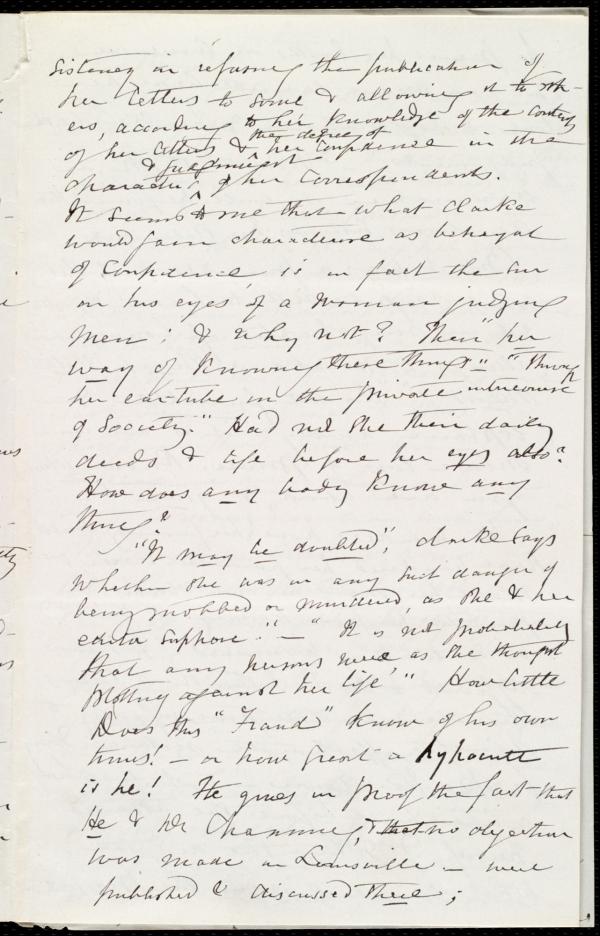 sistency in refusing the publication of
her letters to some & allowing it to oth-
ers, according to her knowledge of the contents
of her letters & the degree of her confidence in the
character & judgment of her correspondents.
It seems to me that what Clarke
would fain characterise as betrayal
of confidence, is in fact the sin
in his eyes, of a woman judging
men: & why not? Then "her
way of knowing these things" "through
her ear-tube in the private intercourse
of Society." Had not she their daily
deeds & life before her eyes also?
How does any body know any
thing?
"It may be doubted", Clarke says
whether she was in any such danger of
being mobbed or murdered, as she & her
editor suppose." — "It is not probable
that any persons were, as she thought
plotting against her life" How little
Does this "Friend" know of his own
times! — or how great a hypocrite
is he! He gives in proof the fact that
He & Dr Channing, that no objection
was made in Louisville — were
published & discussed there;